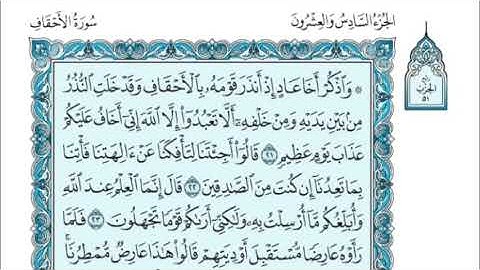 سُورَةُ الأَحْقَافِ
الجُزْءُ السَّادِسُ وَالعِشْرُونَ
۞ وَاذْكُرْ أَخَا عَادٍ إِذْ أَنذَرَ قَوْمَهُ بِالْأَحْقَافِ وَقَدْ خَلَتِ النُّذُرُ
مِنْ بَيْنِ يَدَيْهِ وَمِنْ خَلْفِهِ أَلَّا تَعْبُدُوا إِلَّا اللَّهَ إِنِّي أَخَافُ عَلَيْكُمْ
عَذَابَ يَوْمٍ عَظِيمٍ ٢١ قَالُوا أَجِئْتَنَا لِتَأْفِكَنَا عَنْ ءَالِهَتِنَا فَأْتِنَا
بِمَا تَعِدُنَا إِن كُنتَ مِنَ الصَّادِقِينَ ٢٢ قَالَ إِنَّمَا الْعِلْمُ عِندَ اللَّهِ
وَأُبَلِّغُكُم مَّا أُرْسِلْتُ بِهِ وَلَٰكِنِّي أَرَاكُمْ قَوْمًا تَجْهَلُونَ ٢٣ فَلَمَّا
رَأَوْهُ عَارِضًا مُّسْتَقْبِلَ أَوْدِيَتِهِمْ قَالُوا هَٰذَا عَارِضٌ مُّمْطِرُنَا
ربع
الحزب
٥١